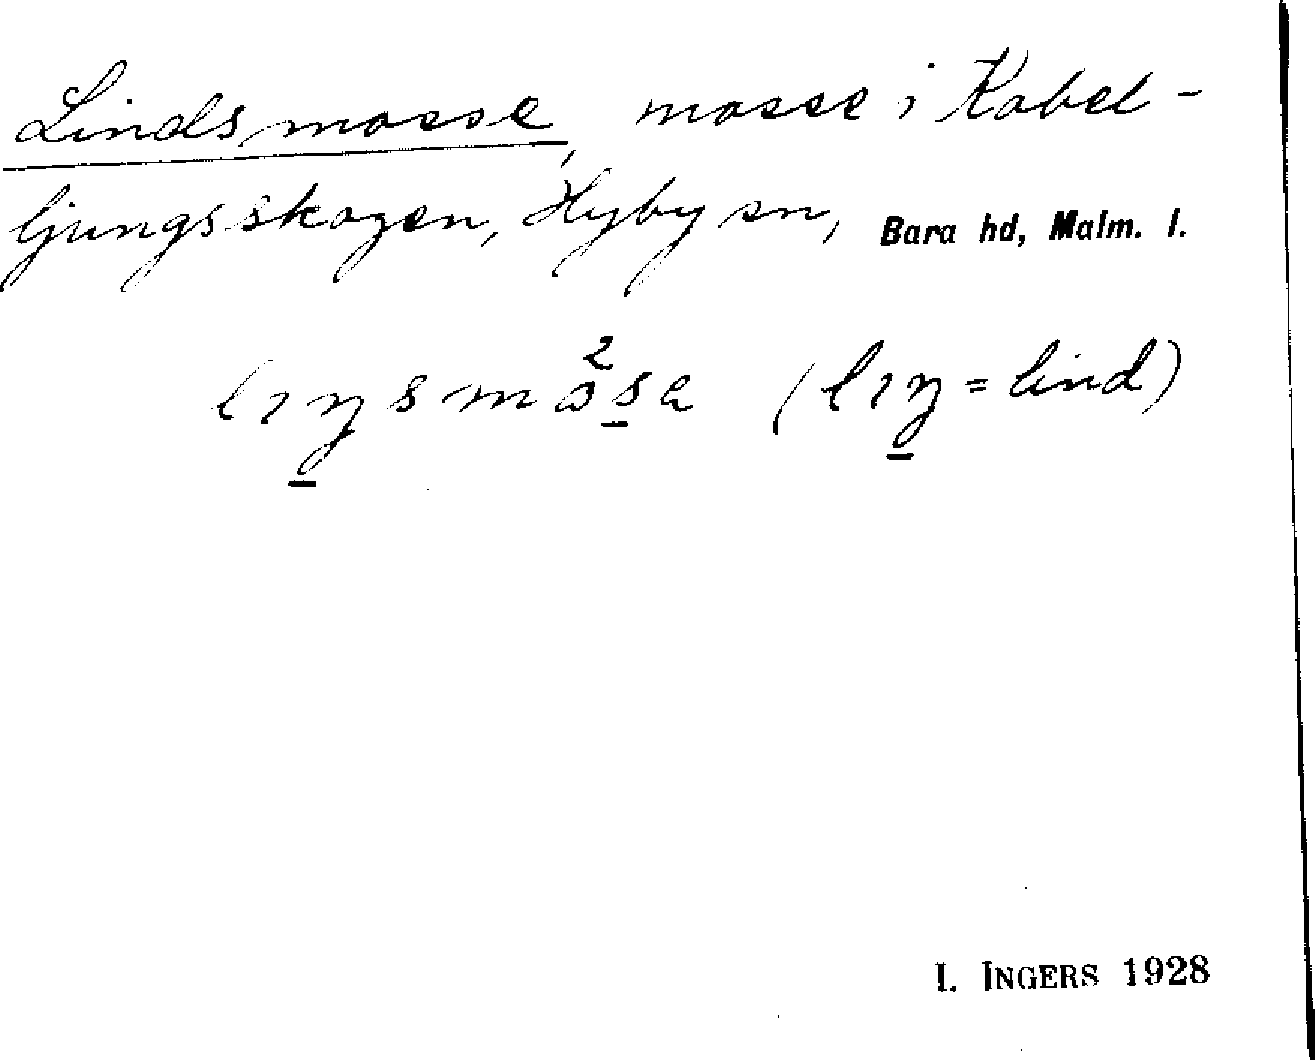 Lindsmosse, mosse i Kabel-
ljungsskogen, Hyby sn, Bara hd, Malm. l.
(lıŋ = lind)
I. INGERS 1928